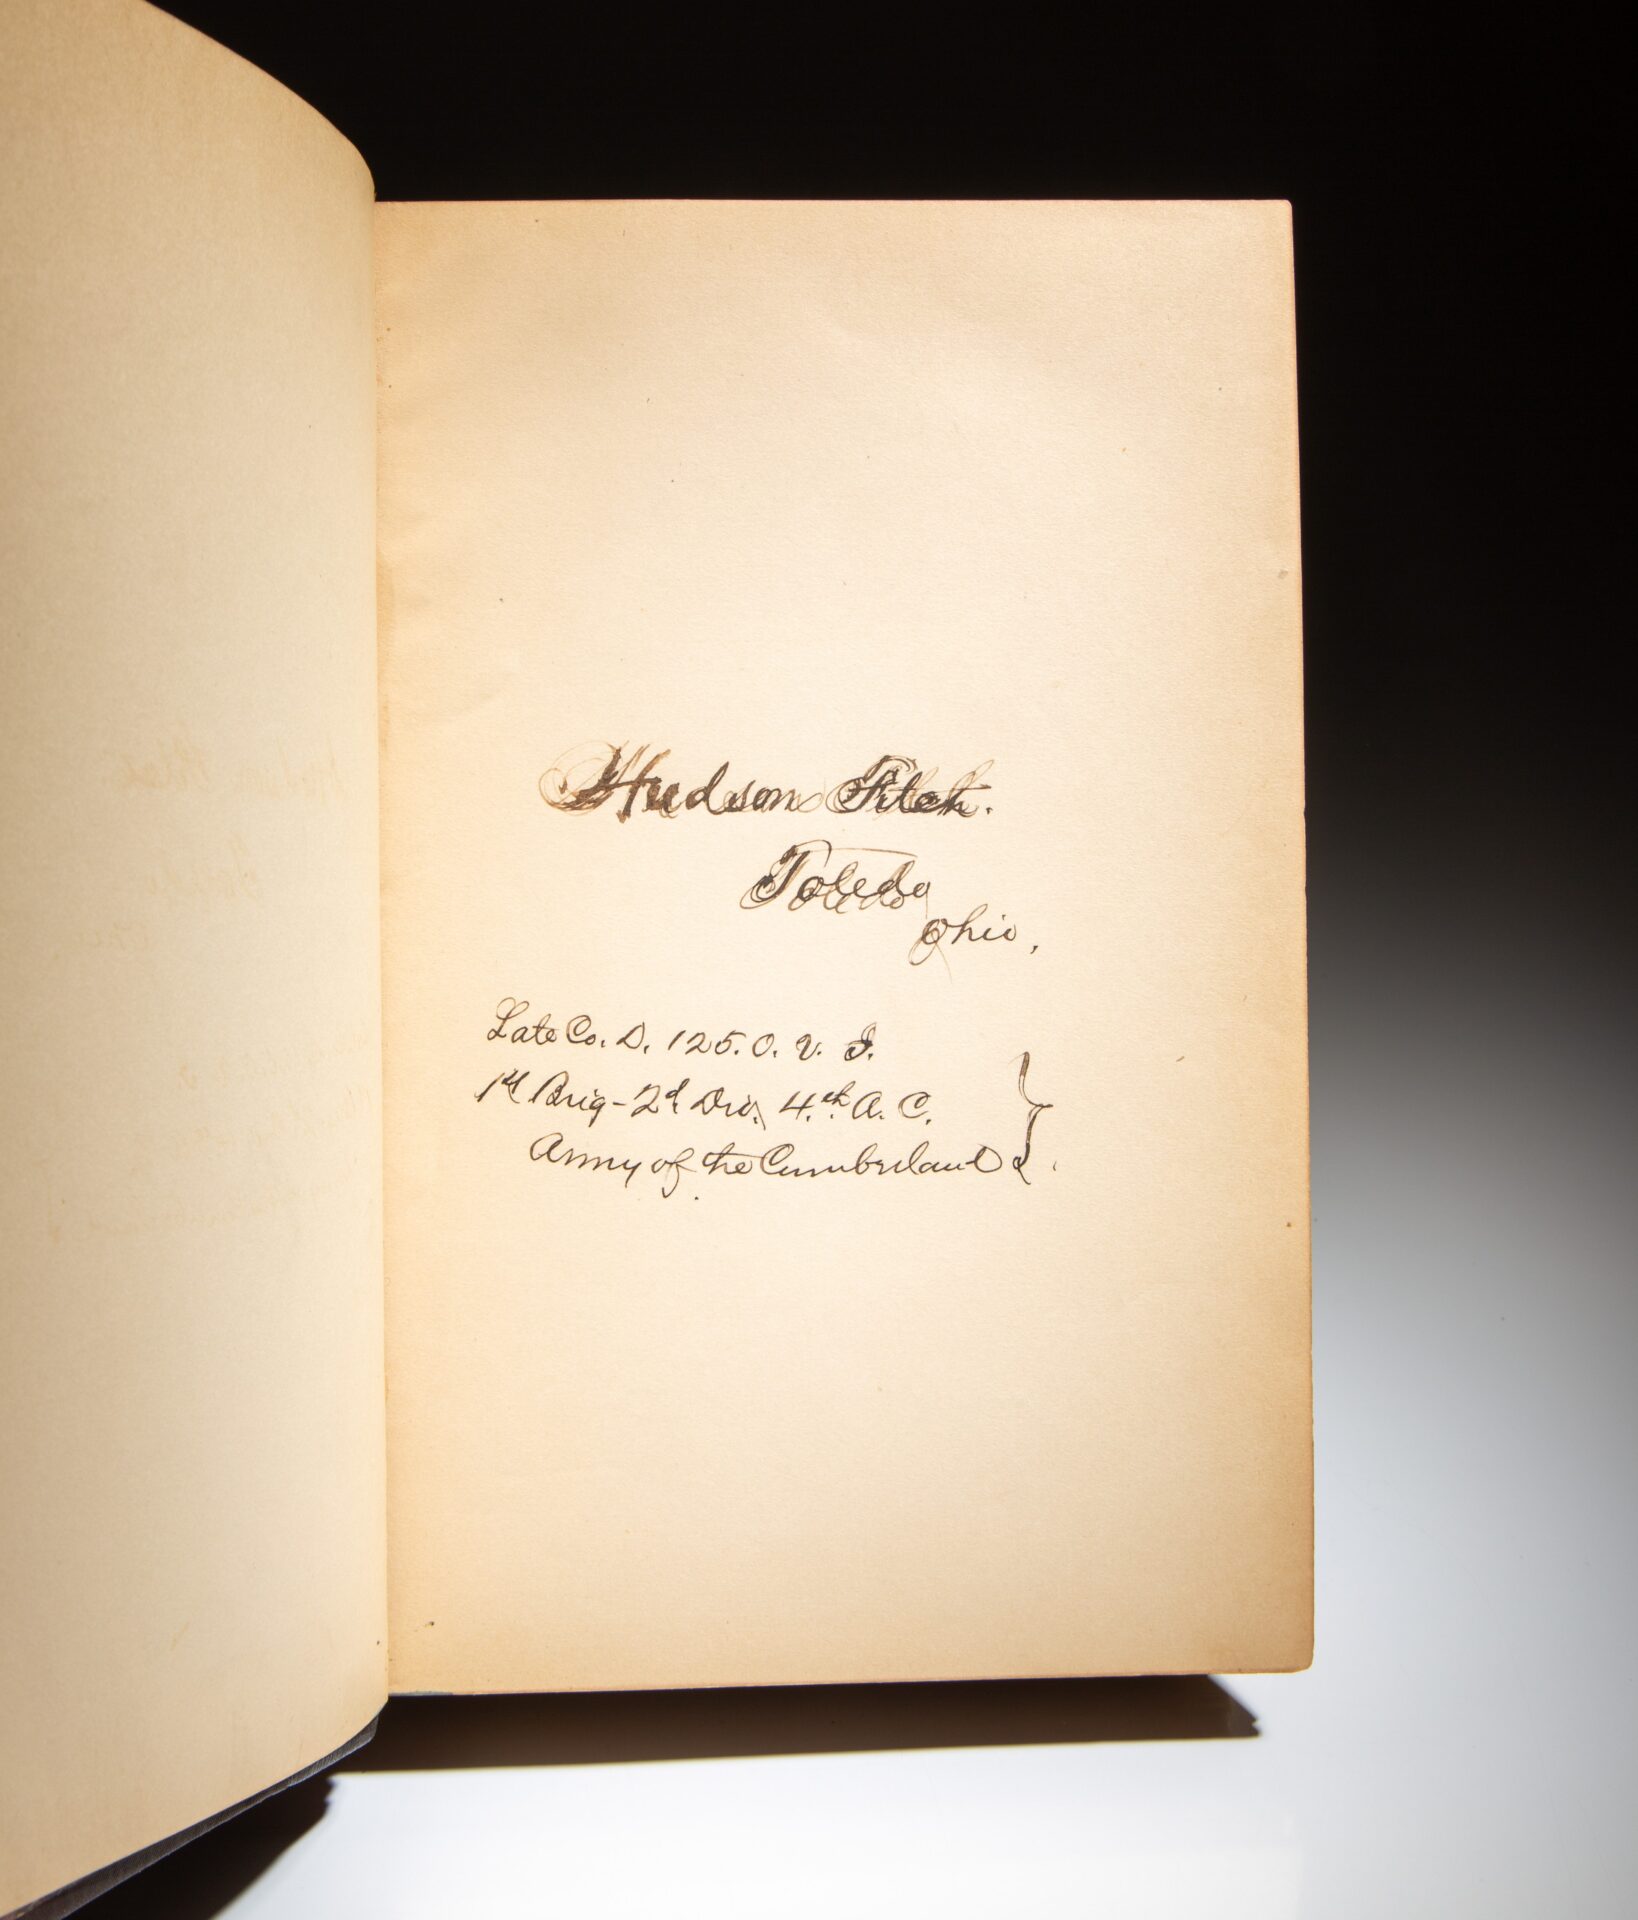 Hudson Fitch.
Toledo
Ohio,
Late Co. D. 125. O. V. I.
1st Brig - 2d Div. 4.th A. C.
Army of the Cumberland